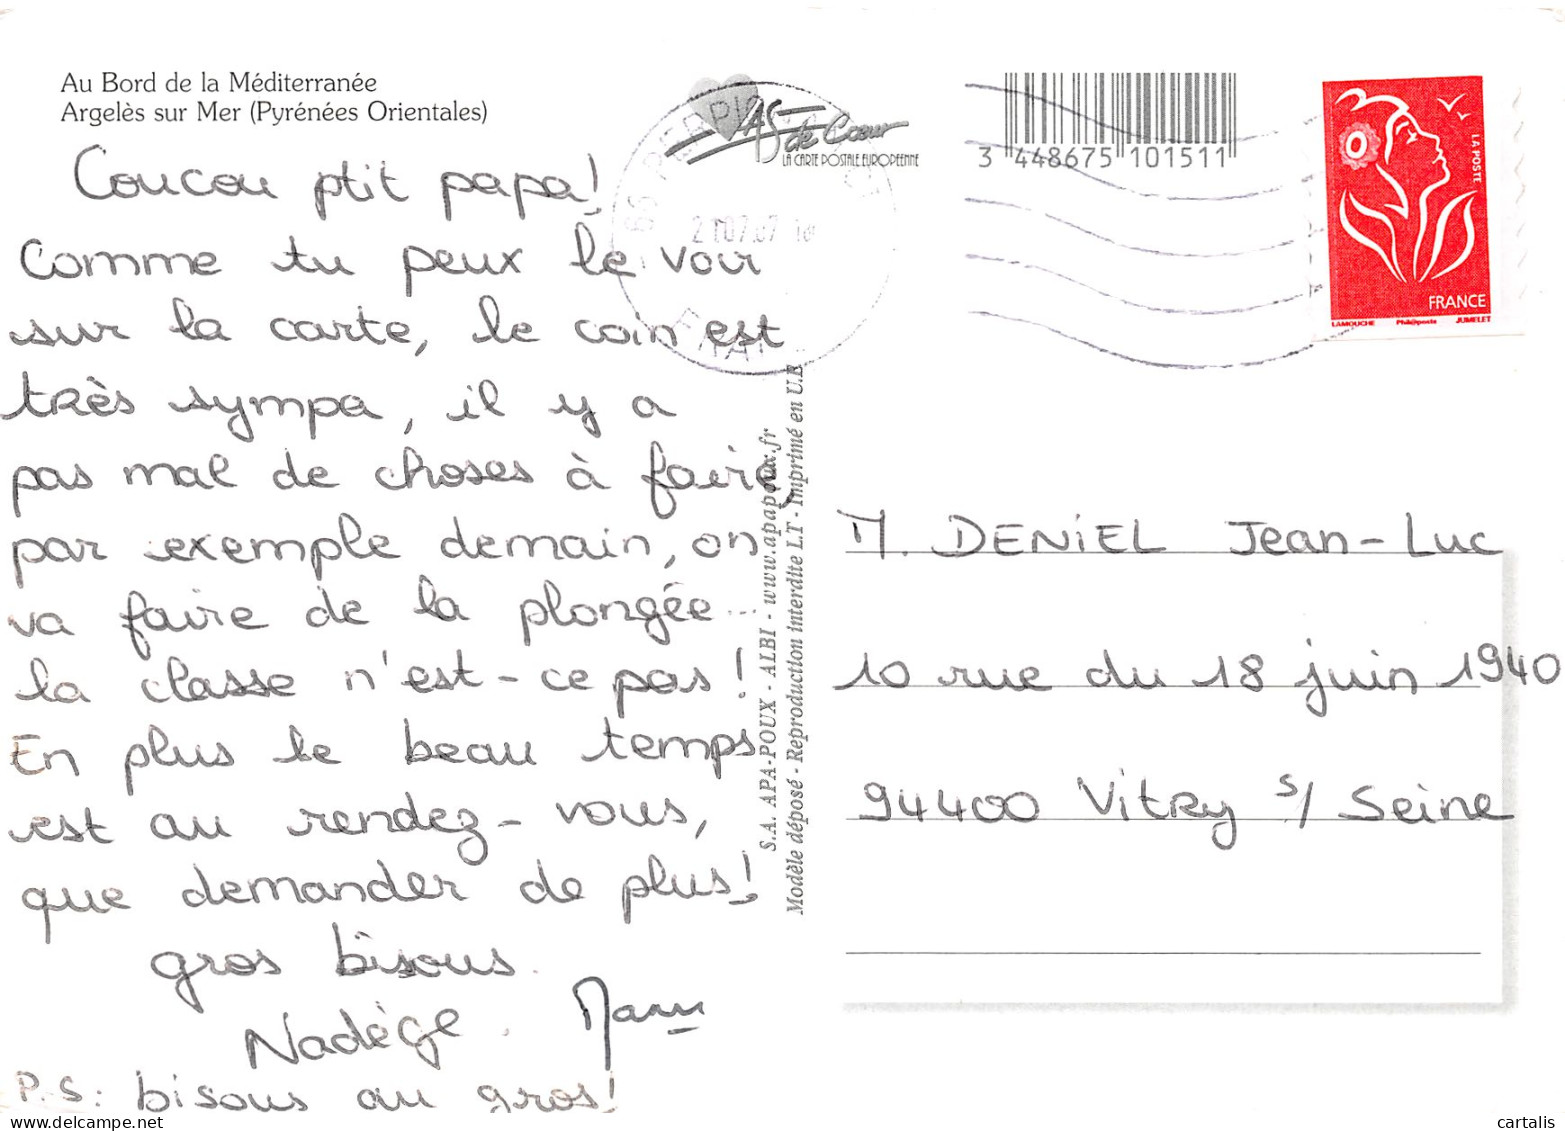 Au Bord de la Méditerranée
Argelès sur Mer (Pyrénées Orientales)
Coucou ptit papa!
Comme tu peux le voir
sur la carte, le coin est
très sympa, il y a
pas mal de choses à faire,
par exemple demain, on
va faire de la plongée...
la classe n'est-ce pas!
En plus le beau temps
est au rendez-vous,
que demander de plus!
gros bisous.
Nadège.
P.S: bisous au gros!
As de Cœur
LA CARTE POSTALE EUROPEENNE
21 07.07
3 448675 101511
LA POSTE
FRANCE
LAMOUCHE Phil@poste JUMELET
S.A. APA-POUX - ALBI - www.apapoux.fr
Modèle déposé - Reproduction interdite LT - Imprimé en U.E
M. DENIEL Jean-Luc
10 rue du 18 juin 1940
94400 Vitry s/ Seine
cartalis